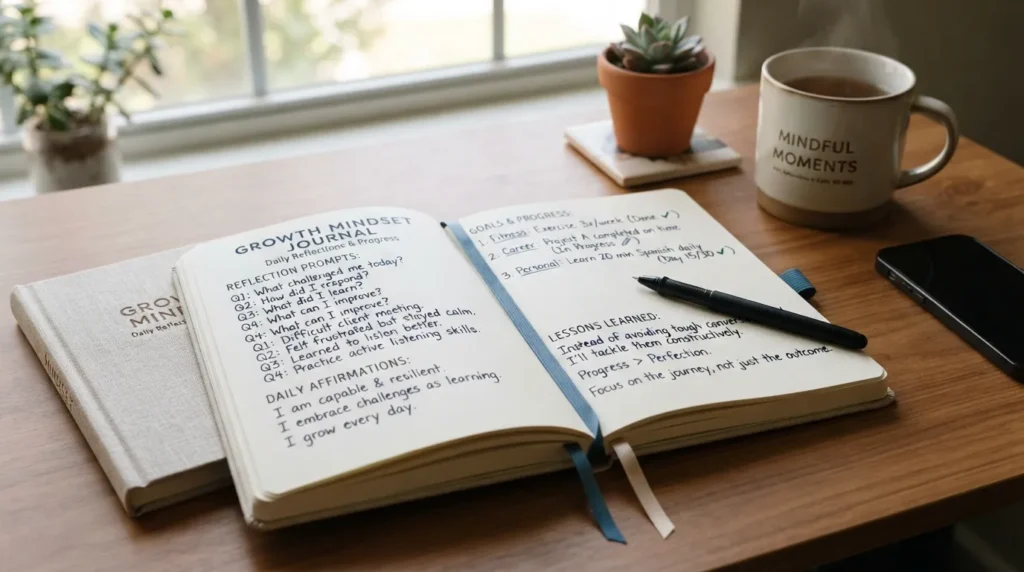 GROWTH MINDSET
JOURNAL
Daily Reflections & Progress
REFLECTION PROMPTS:
Q1: What challenged me today?
Q2: How did I respond?
Q3: What did I learn?
Q4: What can I improve?
Q1: Difficult client meeting.
Q2: Felt frustrated but stayed calm.
Q3: Learned to listen better.
Q4: Practice active listening skills.
DAILY AFFIRMATIONS:
I am capable & resilient.
I embrace challenges as learning.
I grow every day.
GOALS & PROGRESS:
1. Fitness: Exercise 3x/week (Done ✓)
2. Career: Project A completed on time.
(In Progress
3. Personal: Learn 20 min Spanish daily
(Day 15/30 ✓)
LESSONS LEARNED:
Instead of avoiding tough
I'll tackle them constructively.
Progress > Perfection.
Focus on the journey, not just the outcome.
GROW
MIND
Daily Reflec
MINDFUL
MOMENTS